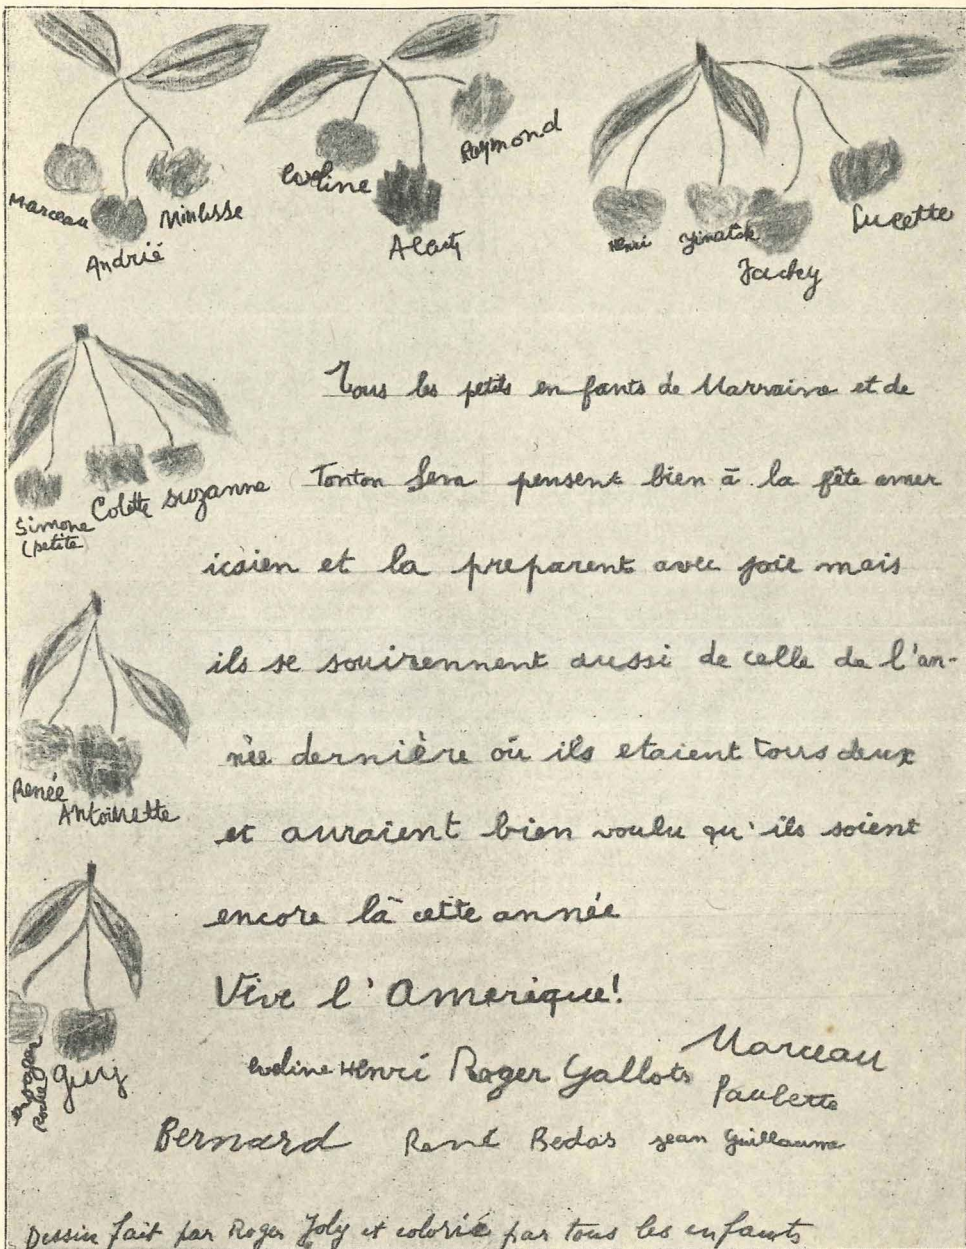 Marceau
Andrié
Eveline
Raymond
Henri
Jacky
Lucette
Simone
(petite)
Colette suzanne
Tous les petits en fants de Marraine et de
Tonton Sera pensent bien à la fête amer
icaien et la preparent avec joie mais
ils se souirennent aussi de celle de l'an-
née dernière où ils etaient tous deux
et auraient bien voulu qu'ils soient
encore là cette année
Vive l'Amerique!
Renée
Antoinette
Guy
eveline Henri Roger Gallots Marceau
Paulette
Bernard René Bedas jean Guillaume
Dessin fait par Roger Joly et colorié par tous les enfants